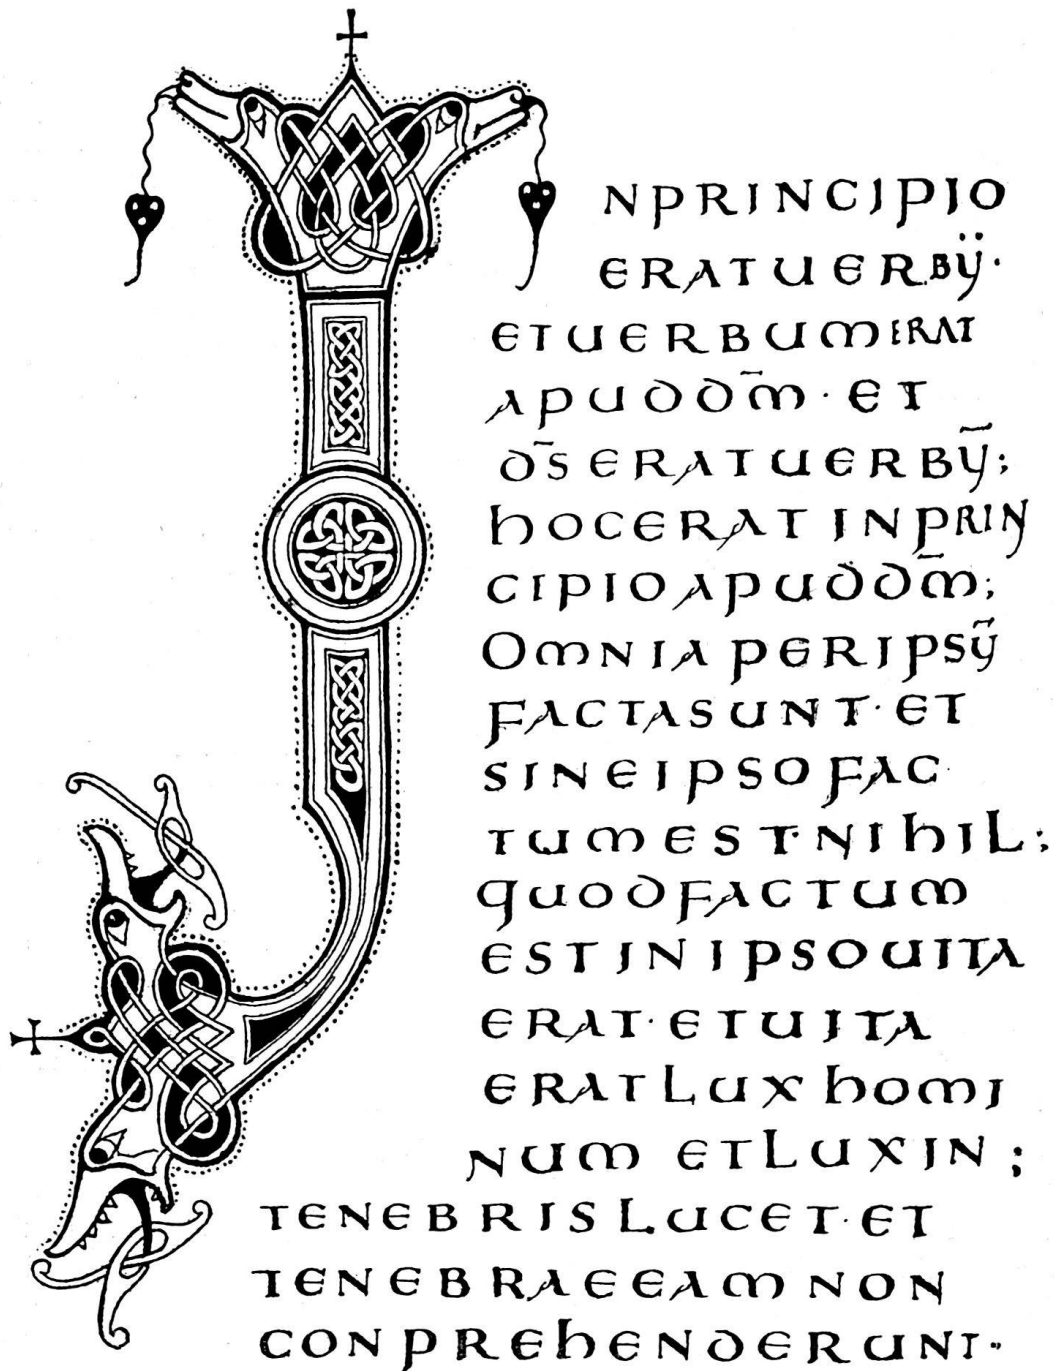 INPRINCIPIO
ERATUERBŪ·
ETUERBUMERAT
APUDDM̄· ET
D̄SERATUERBŪ;
hOCERAT INPRIN
CIPIOAPUDDM̄;
OMNIAPERIPSŪ
FACTASUNT· ET
SINEIPSOFAC
TUMEST·NIhIL;
QUODFACTUM
ESTINIPSOUITA
ERAT· ETUITA
ERATLUXhOMI
NUM ETLUXIN;
TENEBRISLUCET·ET
TENEBRAEEAM NON
CONPREhENDERUNT·